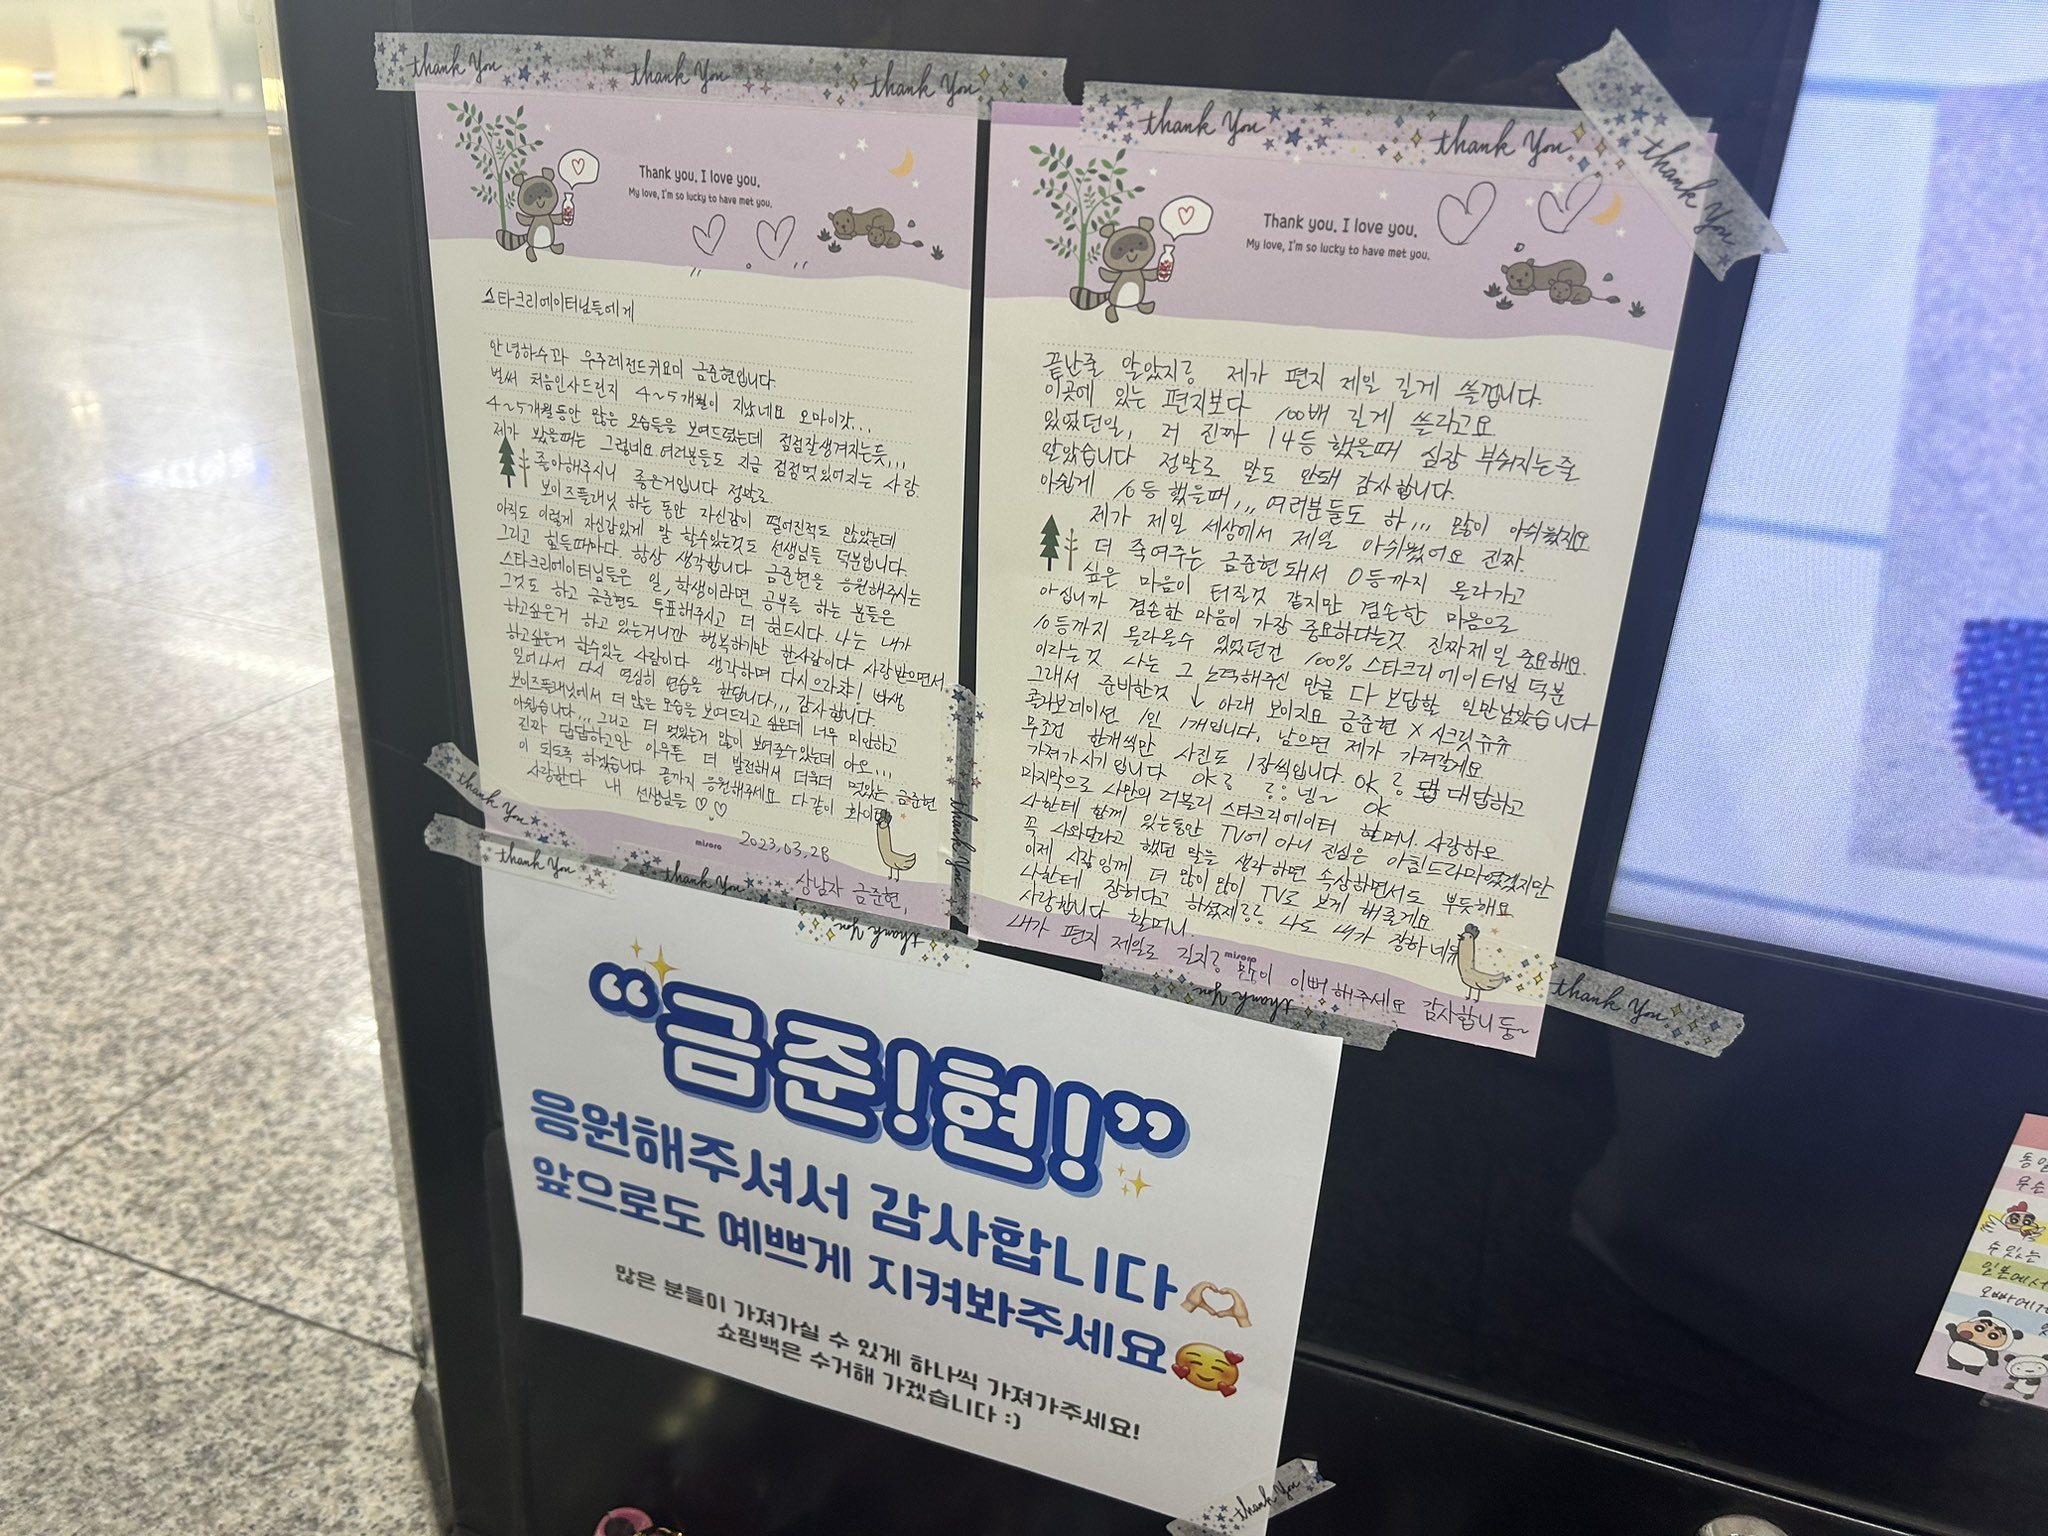 thank You thank You thank You
Thank you. I love you.
My love, I'm so lucky to have met you.
스타크리에이터님들에게
안녕하수과 우주레전드귀요미 금준현입니다
벌써 처음인사드린지 4~5개월이 지났네요 오마이갓...
4~5개월동안 많은 모습들을 보여드렸는데 점점잘생겨지는듯,,,
제가 봤을때는 그렇네요 여러분들도 지금 점점멋있어지는 사람
좋아해주시니 좋은거입니다 정말로
보이즈플래닛 하는 동안 자신감이 떨어진적도 많았는데
아직도 이렇게 자신감있게 말 할수있는것도 선생님들 덕분입니다.
그리고 힘들때마다. 항상 생각합니다 금준현을 응원해주시는
스타크리에이터님들은 일, 학생이라면 공부를 하는 분들은
그것도 하고 금준현도 투표해주시고 더 힘드시다. 나는 내가
하고싶은거 하고 있는거니깐 행복하기만 한사람이다 사랑받으면서
하고싶은거 할수있는 사람이다 생각하며 다시으라챠! 빠샹
일어나서 다시 열심히 연습을 한답니다,,, 감사합니다
보이즈플래닛에서 더 많은 모습을 보여드리고 싶은데 너무 미안하고
아쉽습니다,,, 그리고 더 멋있는거 많이 보여줄수있는데 아오,,,
진짜 답답하고만 아무튼 더 발전해서 더욱더 멋있는 금준현
이 되도록 하겠습니다 끝까지 응원해주세요 다같이 화이팅
사랑한다 내 선생님들 ♡♡
misoro
2023.03.28
상남자 금준현,
thank You thank You
Thank you. I love you.
My love, I'm so lucky to have met you.
thank You
끝난줄 알았지롱 제가 편지 제일 길게 쓸껍니다.
이곳에 있는 편지보다 100배 길게 쓸라고요
있었던일, 저 진짜 14등 했을때 심장 부숴지는줄
알았습니다 정말로 말도 안돼 감사합니다.
아쉽게 10등 했을때,,, 여러분들도 하,,, 많이 아쉬웠지요
제가 제일 세상에서 제일 아쉬웠어요 진짜
더 죽여주는 금준현 돼서 0등까지 올라가고
싶은 마음이 터질것 같지만 겸손한 마음으로
아십니까 겸손한 마음이 가장 중요하다는것 진짜제일 중요해요
10등까지 올라올수 있었던건 100% 스타크리에이터님 덕분
이라는것 나는 그 노력해주신 만큼 다 보답할 일만남았습니다
그래서 준비한것 ↓ 아래 보이지요 금준현 X 시크릿쥬쥬
콜라보레이션 1인 1개입니다. 남으면 제가 가져갈게요
무조건 한개씩만 사진도 1장씩입니다. OK
가져가시기 입니다 대답하고
마지막으로 나만의 러블리 스타크리에이터 할머니. 사랑하오
나한테 함께 있는동안 TV에 아니 진심은 아침드라마였겠지만
꼭 나와달라고 했던 말을 생각하면 속상하면서도 뿌듯해요
이제 더 많이많이 TV로 보게 해줄게요
나한테 장하다고 하셨제 나도 내가 장하네유
사랑합니다 할머니.
내가 편지 제일로 길지롱 많이 이뻐해주세요 감사합니둥~
misoro
thank You
thank You
thank You
thank You
thank You
thank You
thank You
“금준!현!”
응원해주셔서 감사합니다🫶🏻
앞으로도 예쁘게 지켜봐주세요🥰
많은 분들이 가져가실 수 있게 하나씩 가져가주세요!
쇼핑백은 수거해 가겠습니다 :)
thank You
수있는
일본에서